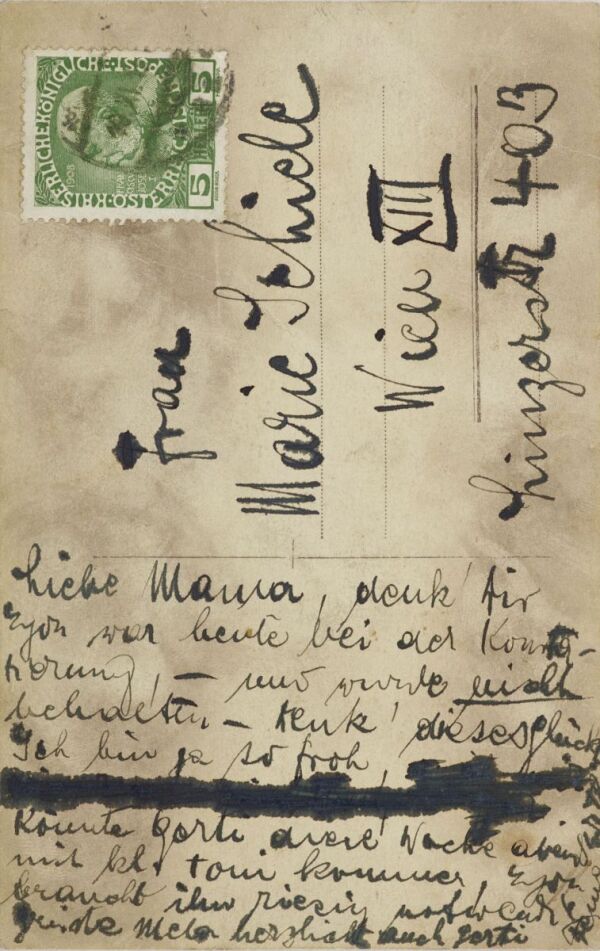 KAISERLICHE KÖNIGLICHE ÖSTERREICHISCHE POST
5 HELLER 5
1908
Frau
Marie Schiele
Wien XIII
Linzerstr 403
Liebe Mama, denk' Dir
Egon war heute bei der
— und wurde nicht
behalten – denk' dieses Glück
Ich bin ja so froh,
Könnte Gerti diese Woche
mit kl. Toni kommen, Egon
braucht ihn riesig notwendig
Grüsse Mela herzlichst auch Gerti